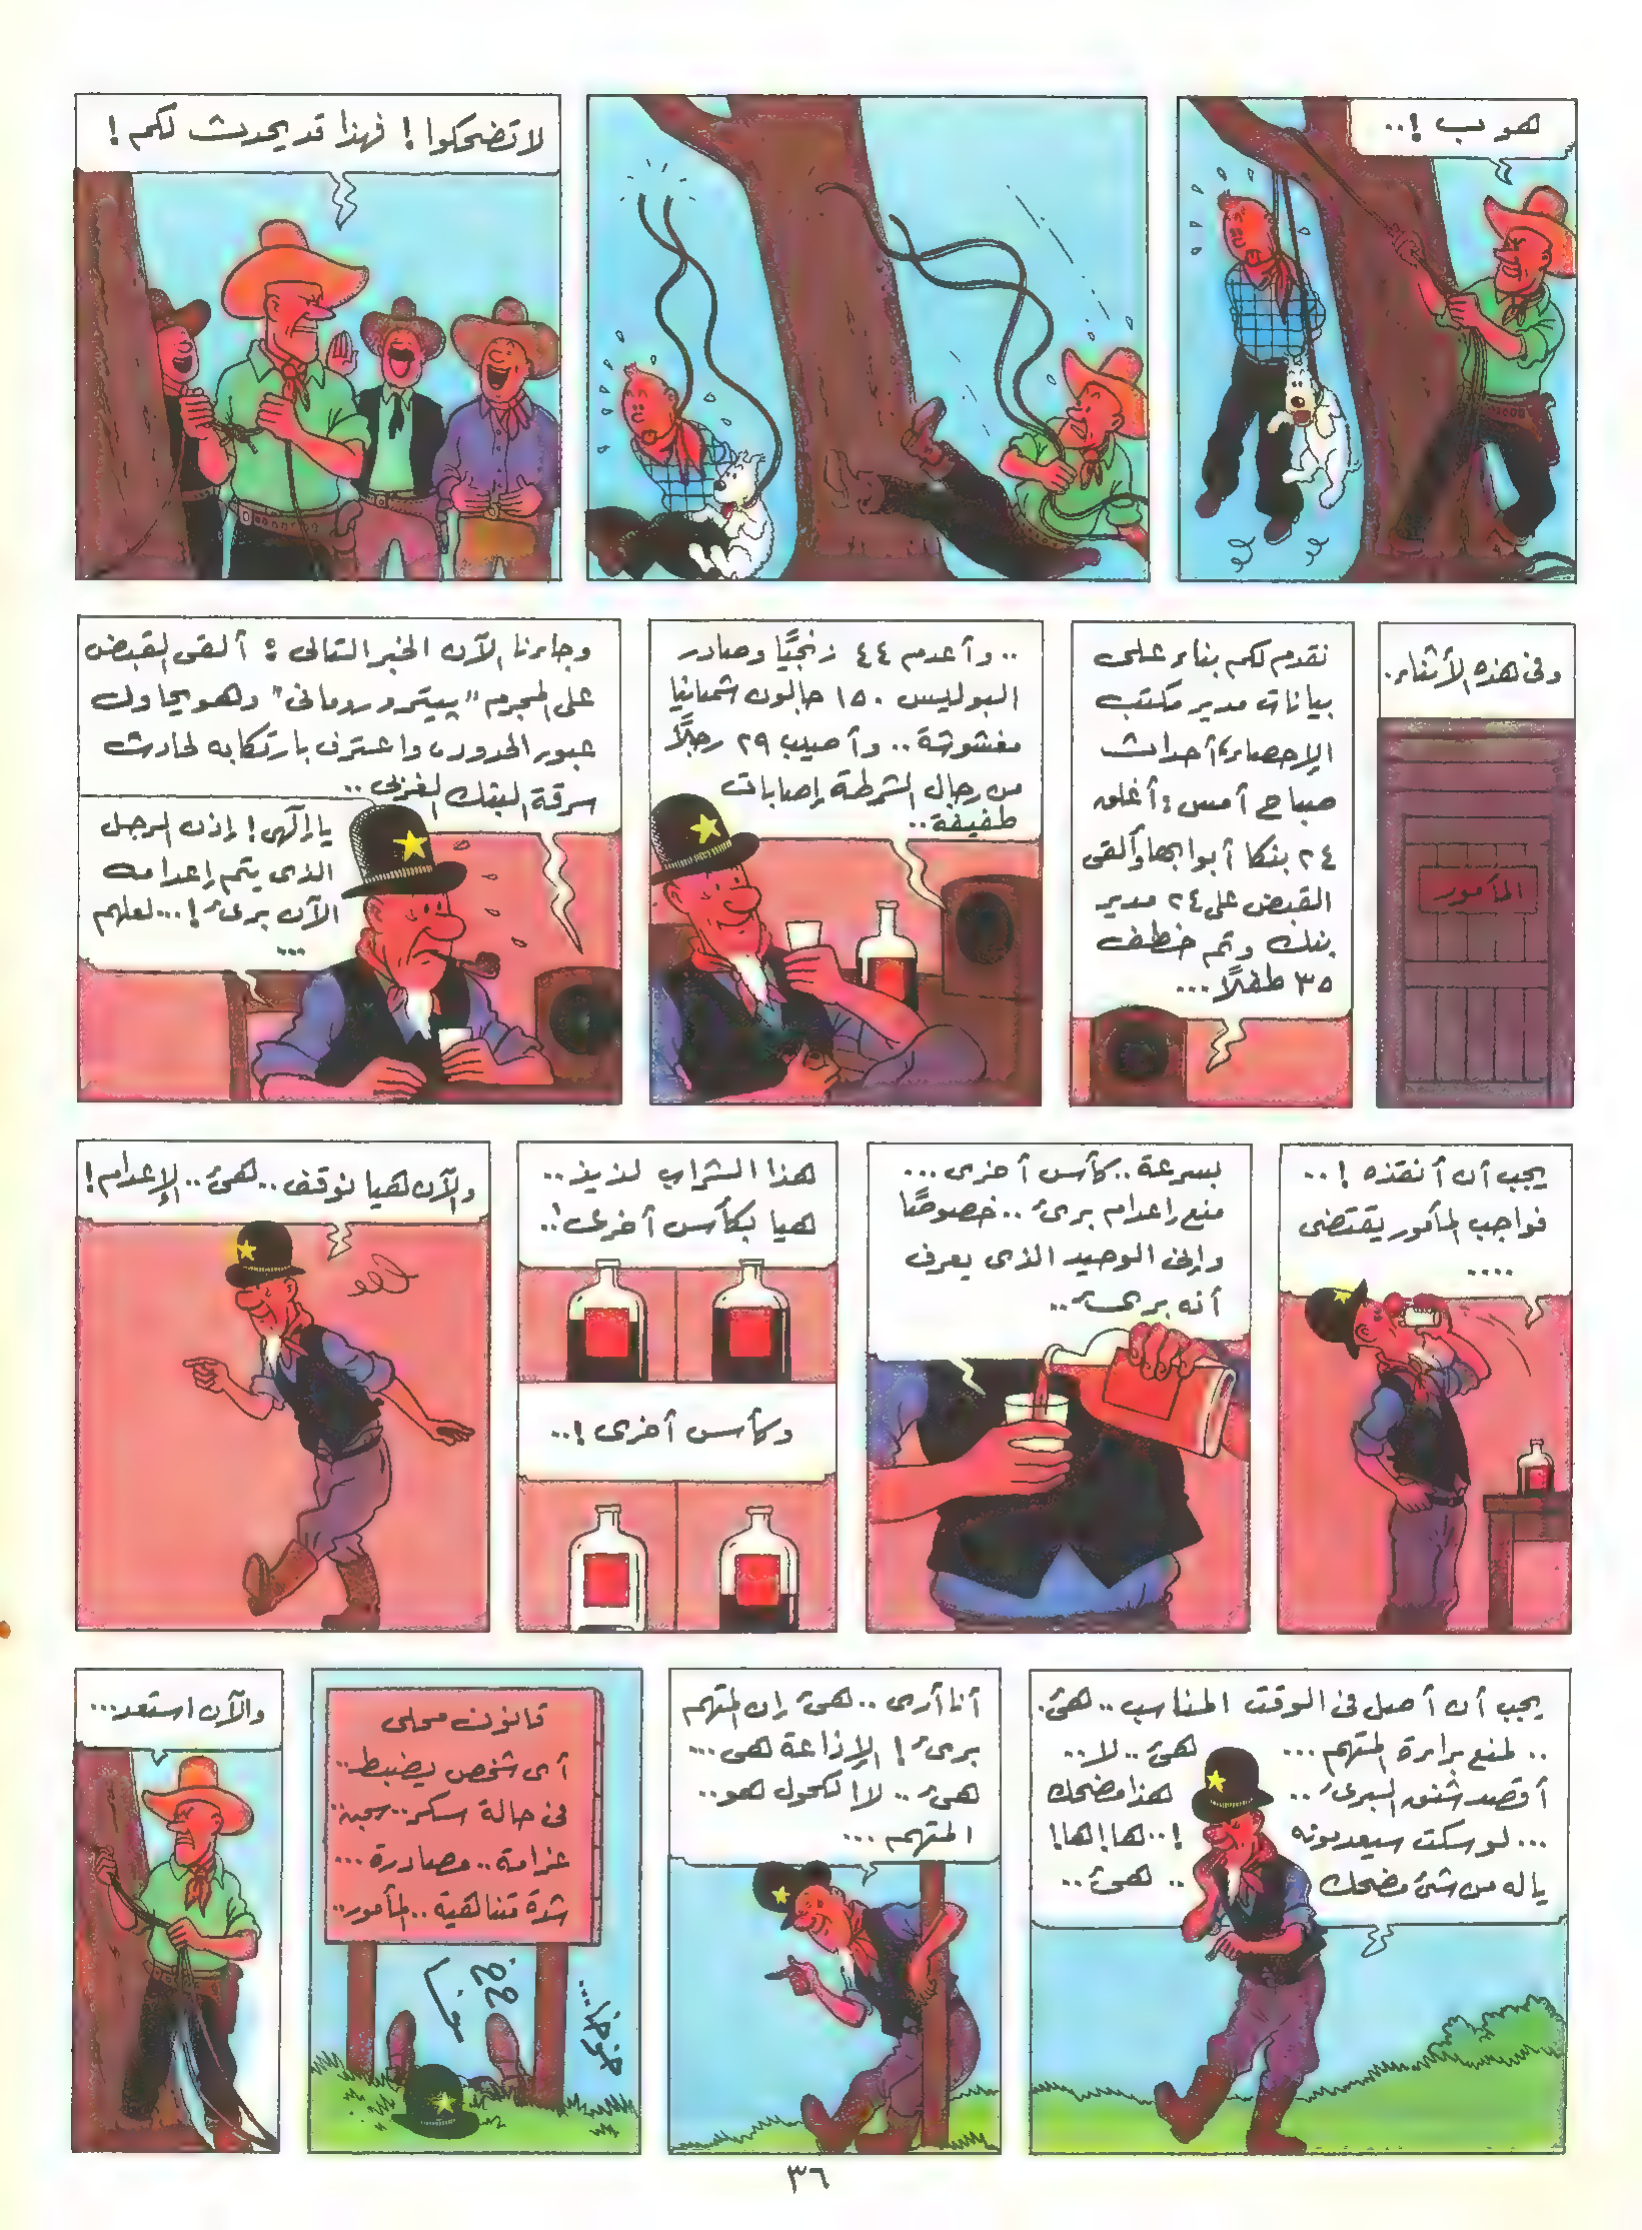 هوب !..
لا تضحكوا ! فهذا قد يحدث لكم !
وفى هذه الأثناء.
المأمور
نقدم لكم بناء على
بيانات مدير مكتب
الإحصاء، أحداث
صباح أمس : أغلق
٢٤ بنكا أبوابها وألقى
القبض على ٢٤ مدير
بنك وتم خطف
٣٥ طفلاً...
.. وأعدم ٤٤ زنجيًا وصادر
البوليس ١٥٠ جالون شمبانيا
مغشوشة.. وأصيب ٢٩ رجلاً
من رجال الشرطة إصابات
طفيفة..
وجاءنا الآن الخبر التالى : ألقى القبض
على المجرم "بيترو رومانى" وهو يحاول
عبور الحدود، واعترف بارتكابه لحادث
سرقة البنك الغربى..
يا إلهى ! إذن الرجل
الذى يتم إعدامه
الآن برىء !... لعلهم
...
يجب أن أنقذه !..
فواجب المأمور يقتضى
....
بسرعة.. كأس أخرى...
منع إعدام برىء .. خصوصًا
وإنى الوحيد الذى يعرف
أنه برىء..
هذا الشراب لذيذ..
هيا بكأس أخرى !..
وكأس أخرى !..
والآن هيا نوقف.. هىء.. الإعدام !
يجب أن أصل فى الوقت المناسب.. هىء.
.. لمنع براءة المتهم... هىء.. لا..
أقصد شنق البرىء.. هذا مضحك
... لو سكت سيعدمونه !.. ها ! ها !
ياله من شىء مضحك .. هىء..
أنا أرى .. هىء إن المتهم
برىء ! الإذاعة هى...
هىء.. لا الكحول هو..
المتهم...
قانون محلى
أى شخص يضبط..
فى حالة سكر.. سجن..
غرامة.. مصادرة...
شدة متناهية.. المأمور..
والآن استعد...
٣٦